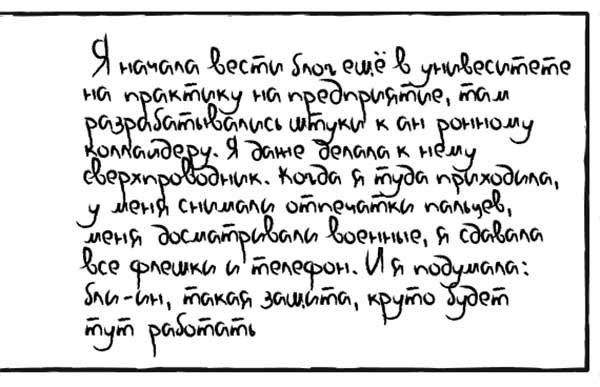 Я начала вести блог ещё в университете
на практику на предприятие, там
разрабатывались штуки к ан ронному
коллайдеру. Я даже делала к нему
сверхпроводник. Когда я туда приходила,
у меня снимали отпечатки пальцев,
меня досматривали военные, я сдавала
все флешки и телефон. И я подумала:
бли-ин, такая защита, круто будет
тут работать